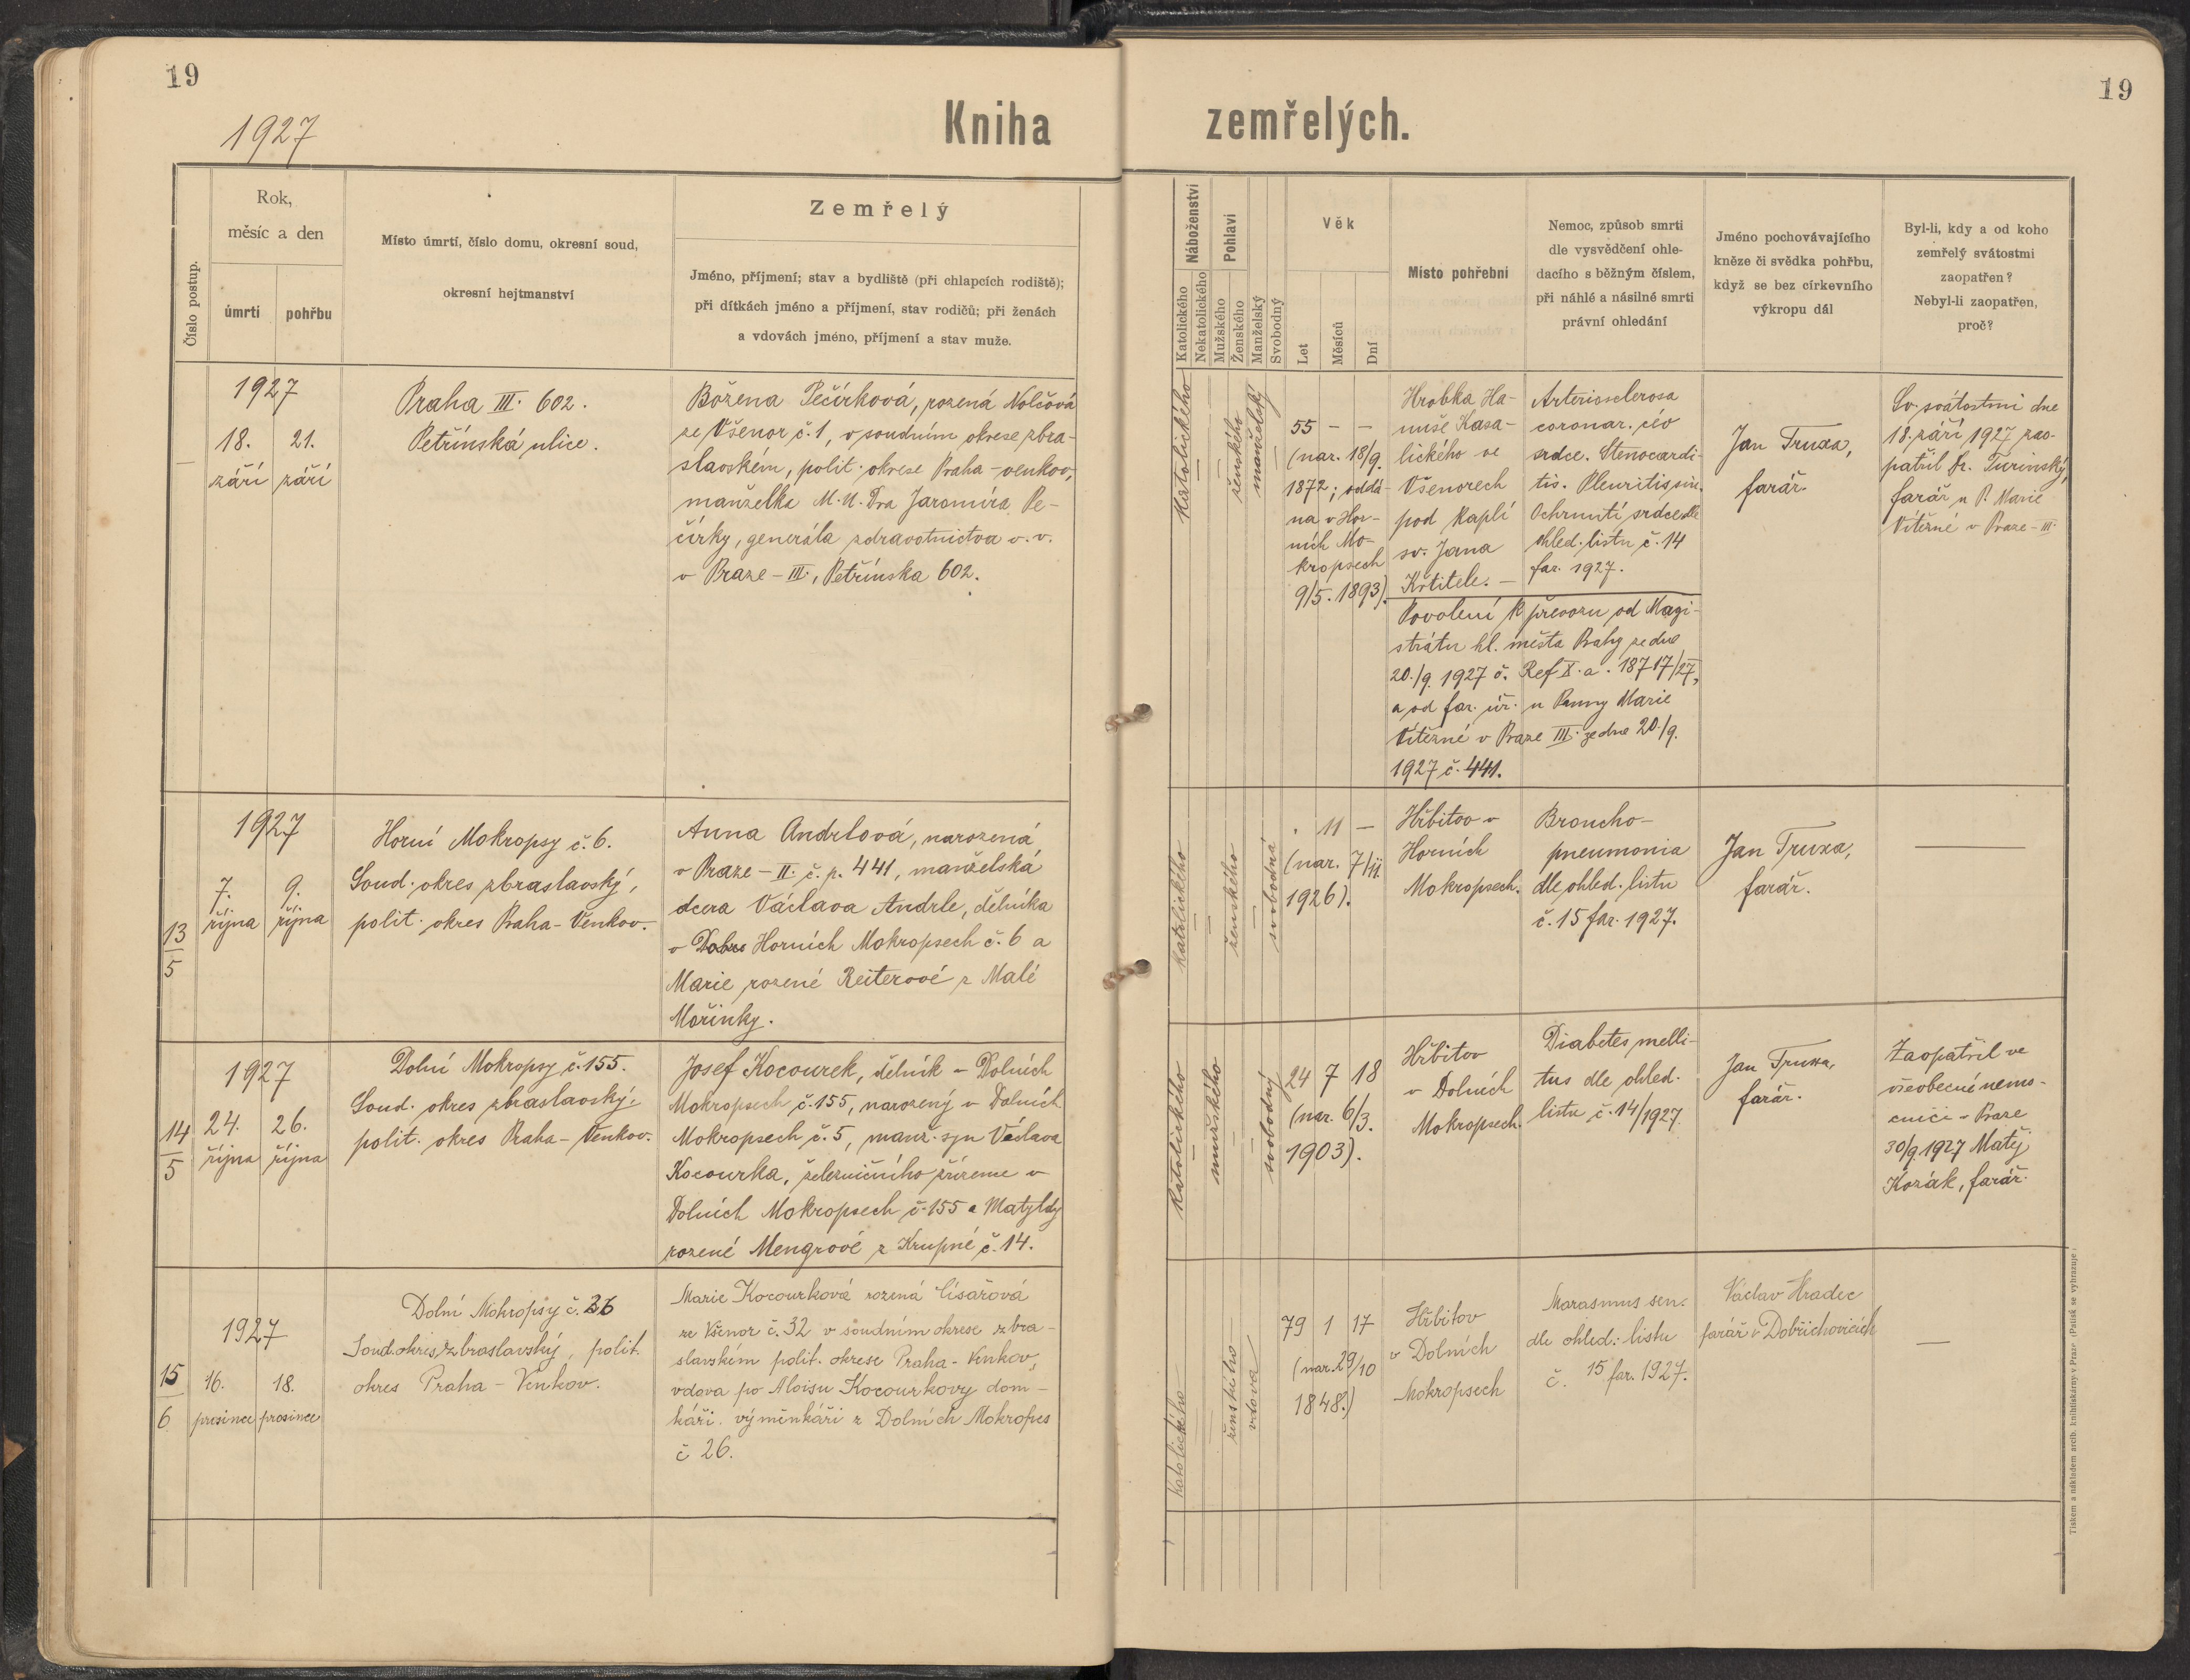 19
1927
Kniha
Číslo postup.
Rok,
měsíc a den
úmrtí
pohřbu
Místo úmrtí, číslo domu, okresní soud,
okresní hejtmanství
Zemřelý
Jméno, příjmení; stav a bydliště (při chlapcích rodiště);
při dítkách jméno a příjmení, stav rodičů; při ženách
a vdovách jméno, příjmení a stav muže.
1927
18. 21.
září září
Praha III. 602.
Petřínská ulice.
Božena Pečírková, rozená Nolčová
ze Všenor č. 1, v soudním okrese zbra-
slavském, polit. okrese Praha-venkov,
manželka M.U.Dra Jaromíra Pe-
čírky, generála zdravotnictva v. v.
v Praze-III., Petřínska 602.
1927
13
5
7. 9.
října října
Horní Mokropsy č. 6.
Soud. okres zbraslavský,
polit. okres Praha-Venkov.
Anna Andrlová, narozená
v Praze-II. č. p. 441, manželská
dcera Václava Andrle, dělníka
v Horních Mokropsech č. 6 a
Marie rozené Reiterové z Malé
Mořinky.
1927
14
5
24. 26.
října října
Dolní Mokropsy č. 155.
Soud. okres zbraslavský,
polit. okres Praha-Venkov.
Josef Kocourek, dělník v Dolních
Mokropsech č. 155, narozený v Dolních
Mokropsech č. 5, manž. syn Václava
Kocourka, železničního zřízence v
Dolních Mokropsech č. 155 a Matyldy
rozené Mengrové z Krupné č. 14.
1927
15
6
16. 18.
prosince prosince
Dolní Mokropsy č. 26
Soud. okres zbraslavský, polit.
okres Praha-Venkov.
Marie Kocourková rozená Císařová
ze Všenor č. 32 v soudním okrese zbra-
slavském polit. okrese Praha-Venkov,
vdova po Aloisu Kocourkovy dom-
káři. výměnkáři z Dolních Mokropes
č 26.
19
zemřelých.
Náboženství
Katolického
Nekatolického
Pohlaví
Mužského
Ženského
Manželský
Svobodný
Věk
Let
Měsíců
Dní
Místo pohřební
Nemoc, způsob smrti
dle vysvědčení ohle-
dacího s běžným číslem,
při náhlé a násilné smrti
právní ohledání
Jméno pochovávajícího
kněze či svědka pohřbu,
když se bez církevního
výkropu dál
Byl-li, kdy a od koho
zemřelý svátostmi
zaopatřen?
Nebyl-li zaopatřen,
proč?
Katolického
ženského
manželský
55 - -
(nar. 18/9.
1872; oddá-
na v Hor-
ních Mo-
kropsech
9/5. 1893).
Hrobka Ha-
nuše Kasa-
lického ve
Všenorech
pod kaplí
sv. Jana
Křtitele. -
Arteriosclerosa
coronar. cév
srdce. Stenocardi-
tis. Pleuritis sin.
Ochrnutí srdce dle
ohled. listu č. 14
far. 1927.
Povolení k převozu od Magi-
strátu hl. města Prahy ze dne
20./9. 1927 č. Ref X. a. 18717/27,
a od far. úř. u Panny Marie
Vítězné v Praze III. ze dne 20./9.
1927 č. 441.
Jan Truxa,
farář.
Sv. svátostmi dne
18. září 1927 zao-
patřil Fr. Turinský,
farář u P. Marie
Vítězné v Praze-III.
katolického
ženského
svobodná
11 -
(nar. 7/11
1926).
Hřbitov v
Horních
Mokropsech.
Broncho-
pneumonia
dle ohled. listu
č. 15 far. 1927.
Jan Truxa,
farář.
Katolického
mužského
svobodný
24 7 18
(nar. 6/3.
1903).
Hřbitov
v Dolních
Mokropsech.
Diabetes melli-
tus dle ohled.
listu č. 14/1927.
Jan Truxa,
farář.
Zaopatřil ve
všeobecné nemo-
cnici v Praze
30/9 1927 Matěj
Kozák, farář.
katolického
ženského
vdova
79 1 17
(nar. 29/10
1848.)
Hřbitov
v Dolních
Mokropsech
Marasmus sen.
dle ohled: listu
č. 15 far. 1927.
Václav Hradec
farář v Dobřichovicích
Tiskem a nákladem arcib. knihtiskárny v Praze (Patisk se vyhrazuje)